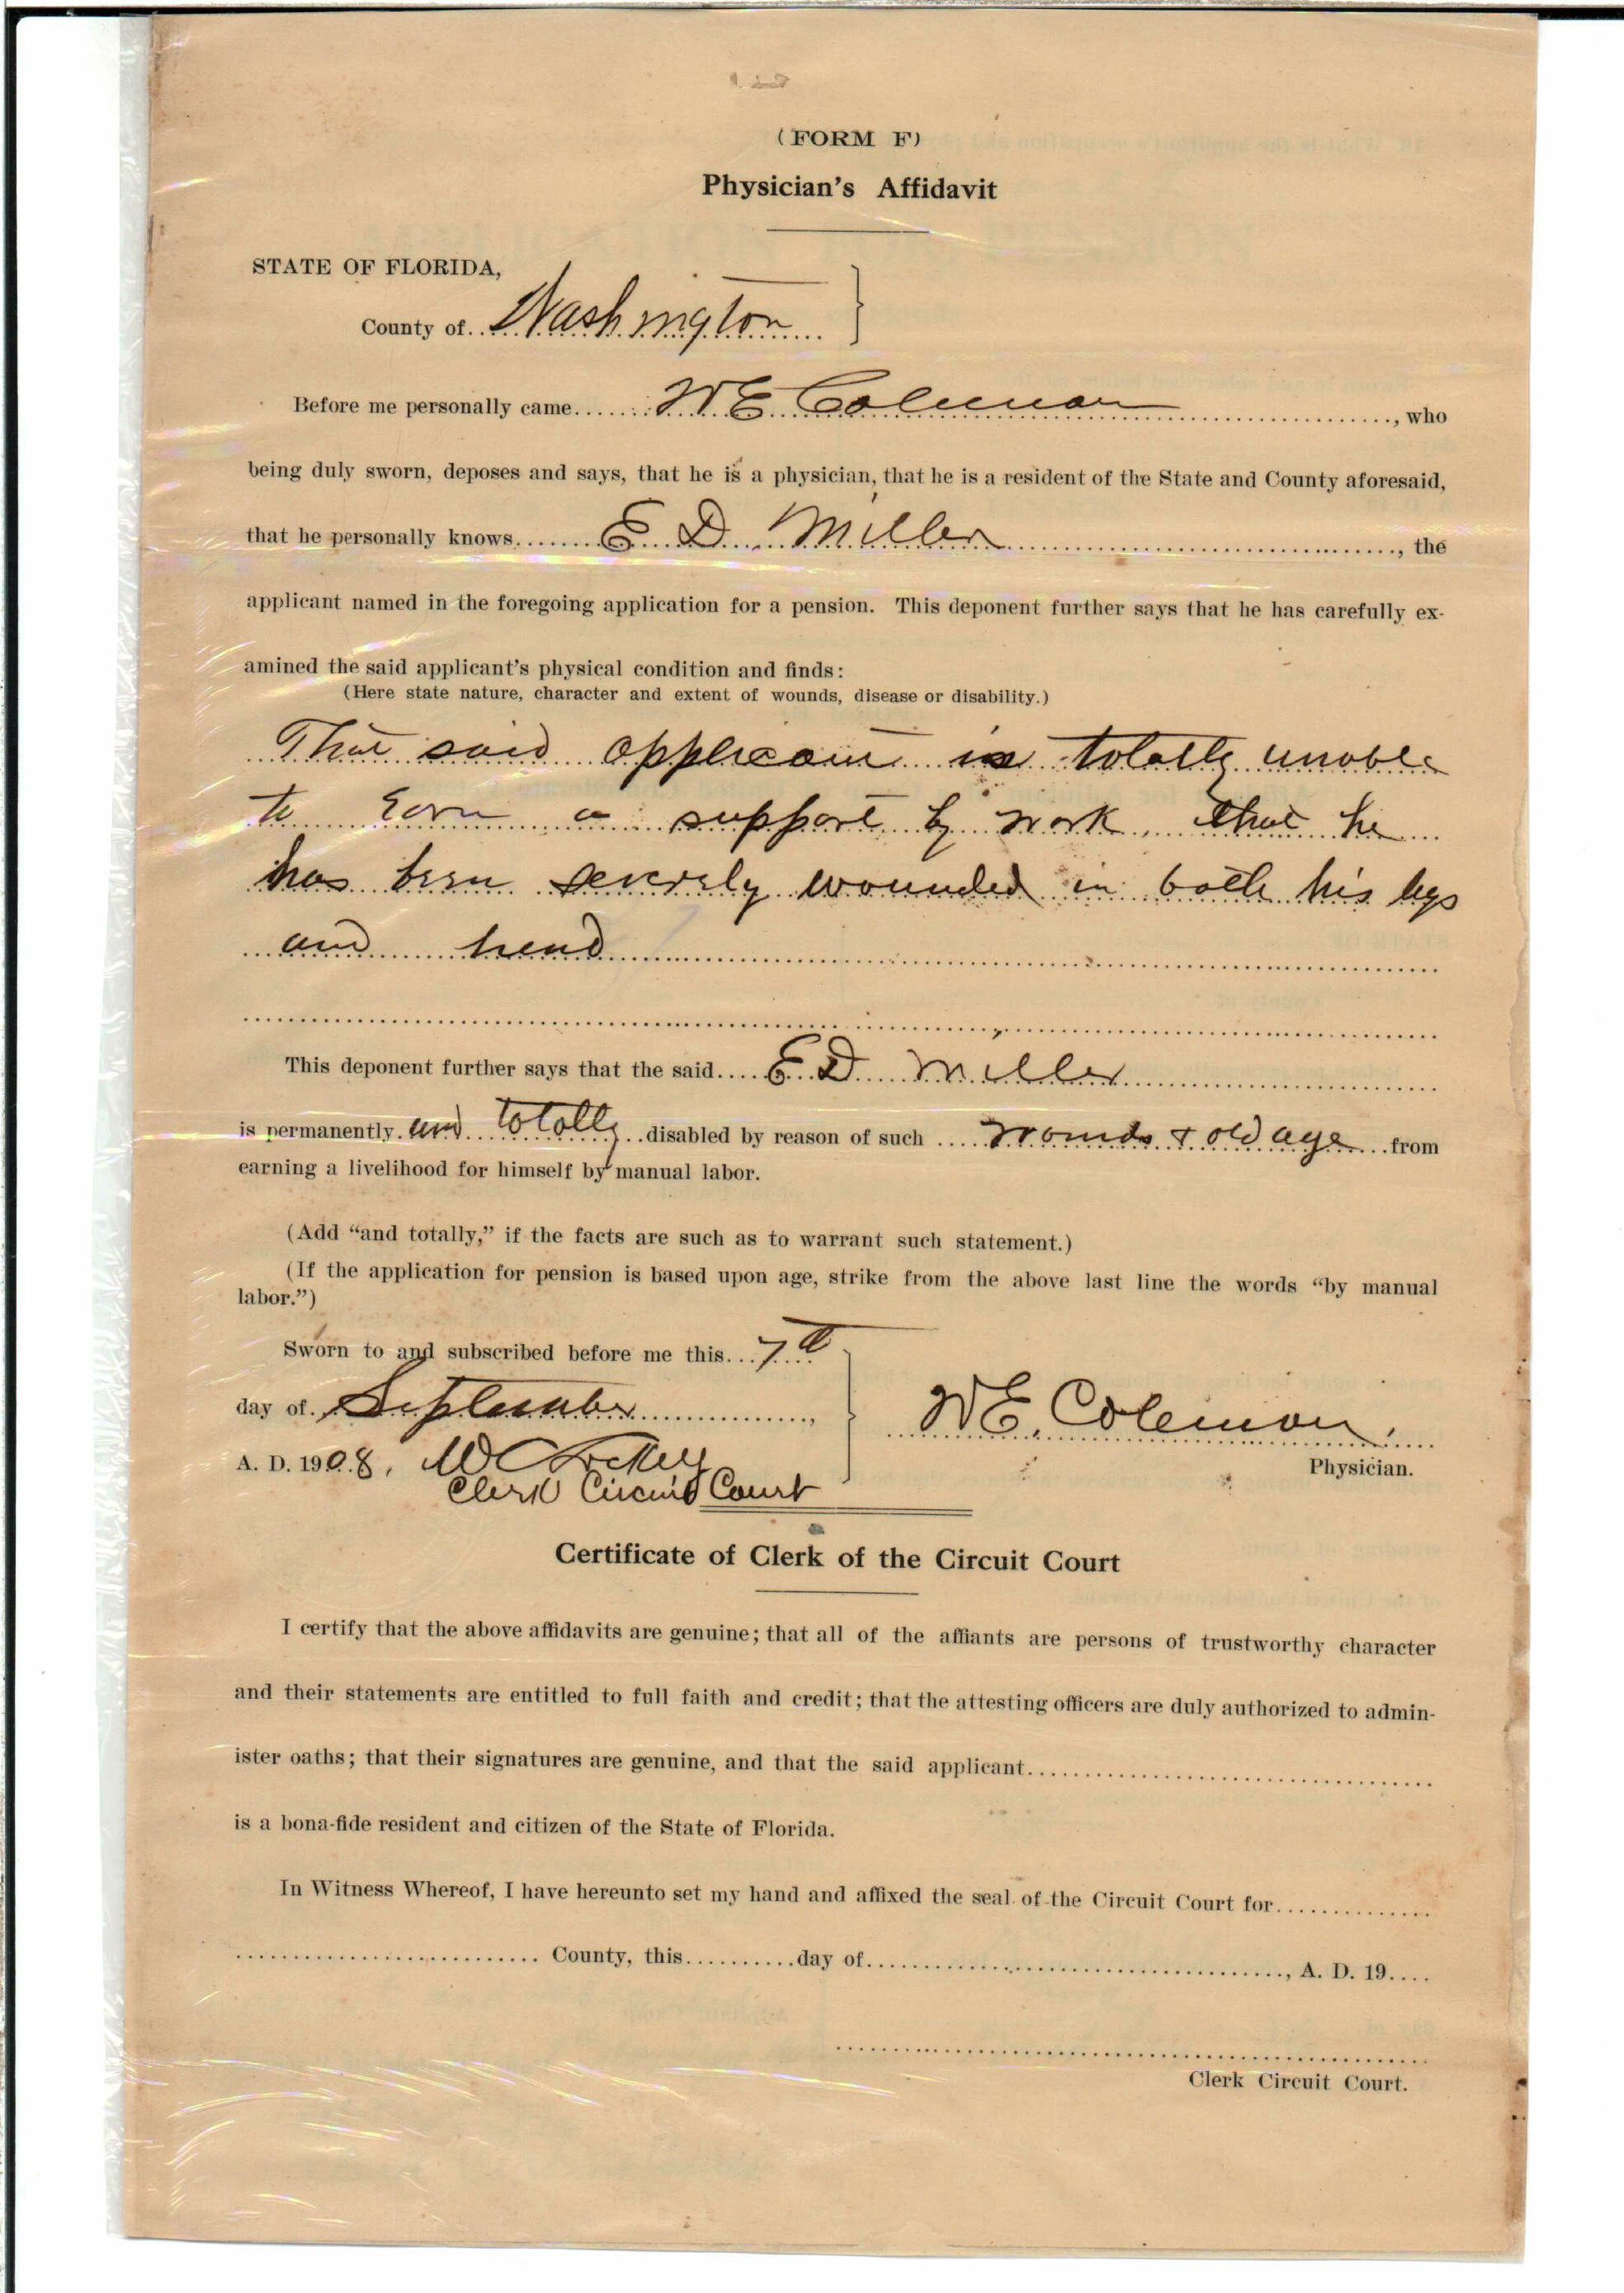 (FORM F)
Physician's Affidavit
STATE OF FLORIDA,
County of Washington
Before me personally came W E Coleman, who
being duly sworn, deposes and says, that he is a physician, that he is a resident of the State and County aforesaid,
that he personally knows E D Miller, the
applicant named in the foregoing application for a pension. This deponent further says that he has carefully ex-
amined the said applicant's physical condition and finds:
(Here state nature, character and extent of wounds, disease or disability.)
That said applicant is totally unable
to earn a support by work, that he
has been severely wounded in both his legs
and head
This deponent further says that the said E D Miller
is permanently and totally disabled by reason of such wounds & old age from
earning a livelihood for himself by manual labor.
(Add "and totally," if the facts are such as to warrant such statement.)
(If the application for pension is based upon age, strike from the above last line the words "by manual
labor.")
Sworn to and subscribed before me this 7th
day of September,
W E Coleman
A. D. 1908. W C
Physician.
Clerk Circuit Court
Certificate of Clerk of the Circuit Court
I certify that the above affidavits are genuine; that all of the affiants are persons of trustworthy character
and their statements are entitled to full faith and credit; that the attesting officers are duly authorized to admin-
ister oaths; that their signatures are genuine, and that the said applicant
is a bona-fide resident and citizen of the State of Florida.
In Witness Whereof, I have hereunto set my hand and affixed the seal of the Circuit Court for
County, this day of, A. D. 19
Clerk Circuit Court.